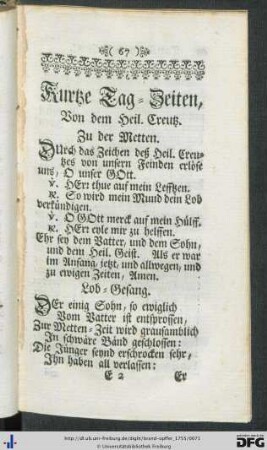 ( 67 )
Kurtze Tag-Zeiten,
Von dem Heil. Creutz.
Zu der Metten.
DUrch das Zeichen deß Heil. Creu-
tzes von unsern Feinden erlöse
uns, O unser GOtt.
V. HErr thue auf mein Lefftzen.
R. So wird mein Mund dein Lob
verkündigen.
V. O GOtt merck auf mein Hülff.
R. HErr eyle mir zu helffen.
Ehr sey dem Vatter, und dem Sohn,
und dem Heil. Geist. Als er war
im Anfang, jetzt, und allwegen, und
zu ewigen Zeiten, Amen.
Lob-Gesang.
DEr einig Sohn, so ewiglich
Vom Vatter ist entsprossen,
Zur Metten-Zeit wird grausamblich
In schwäre Bänd geschlossen:
Die Jünger seynd erschrocken sehr,
Ihn haben all verlassen:
E 2 Er
http://dl.ub.uni-freiburg.de/diglit/brand-opffer_1755/0071
© Universitätsbibliothek Freiburg